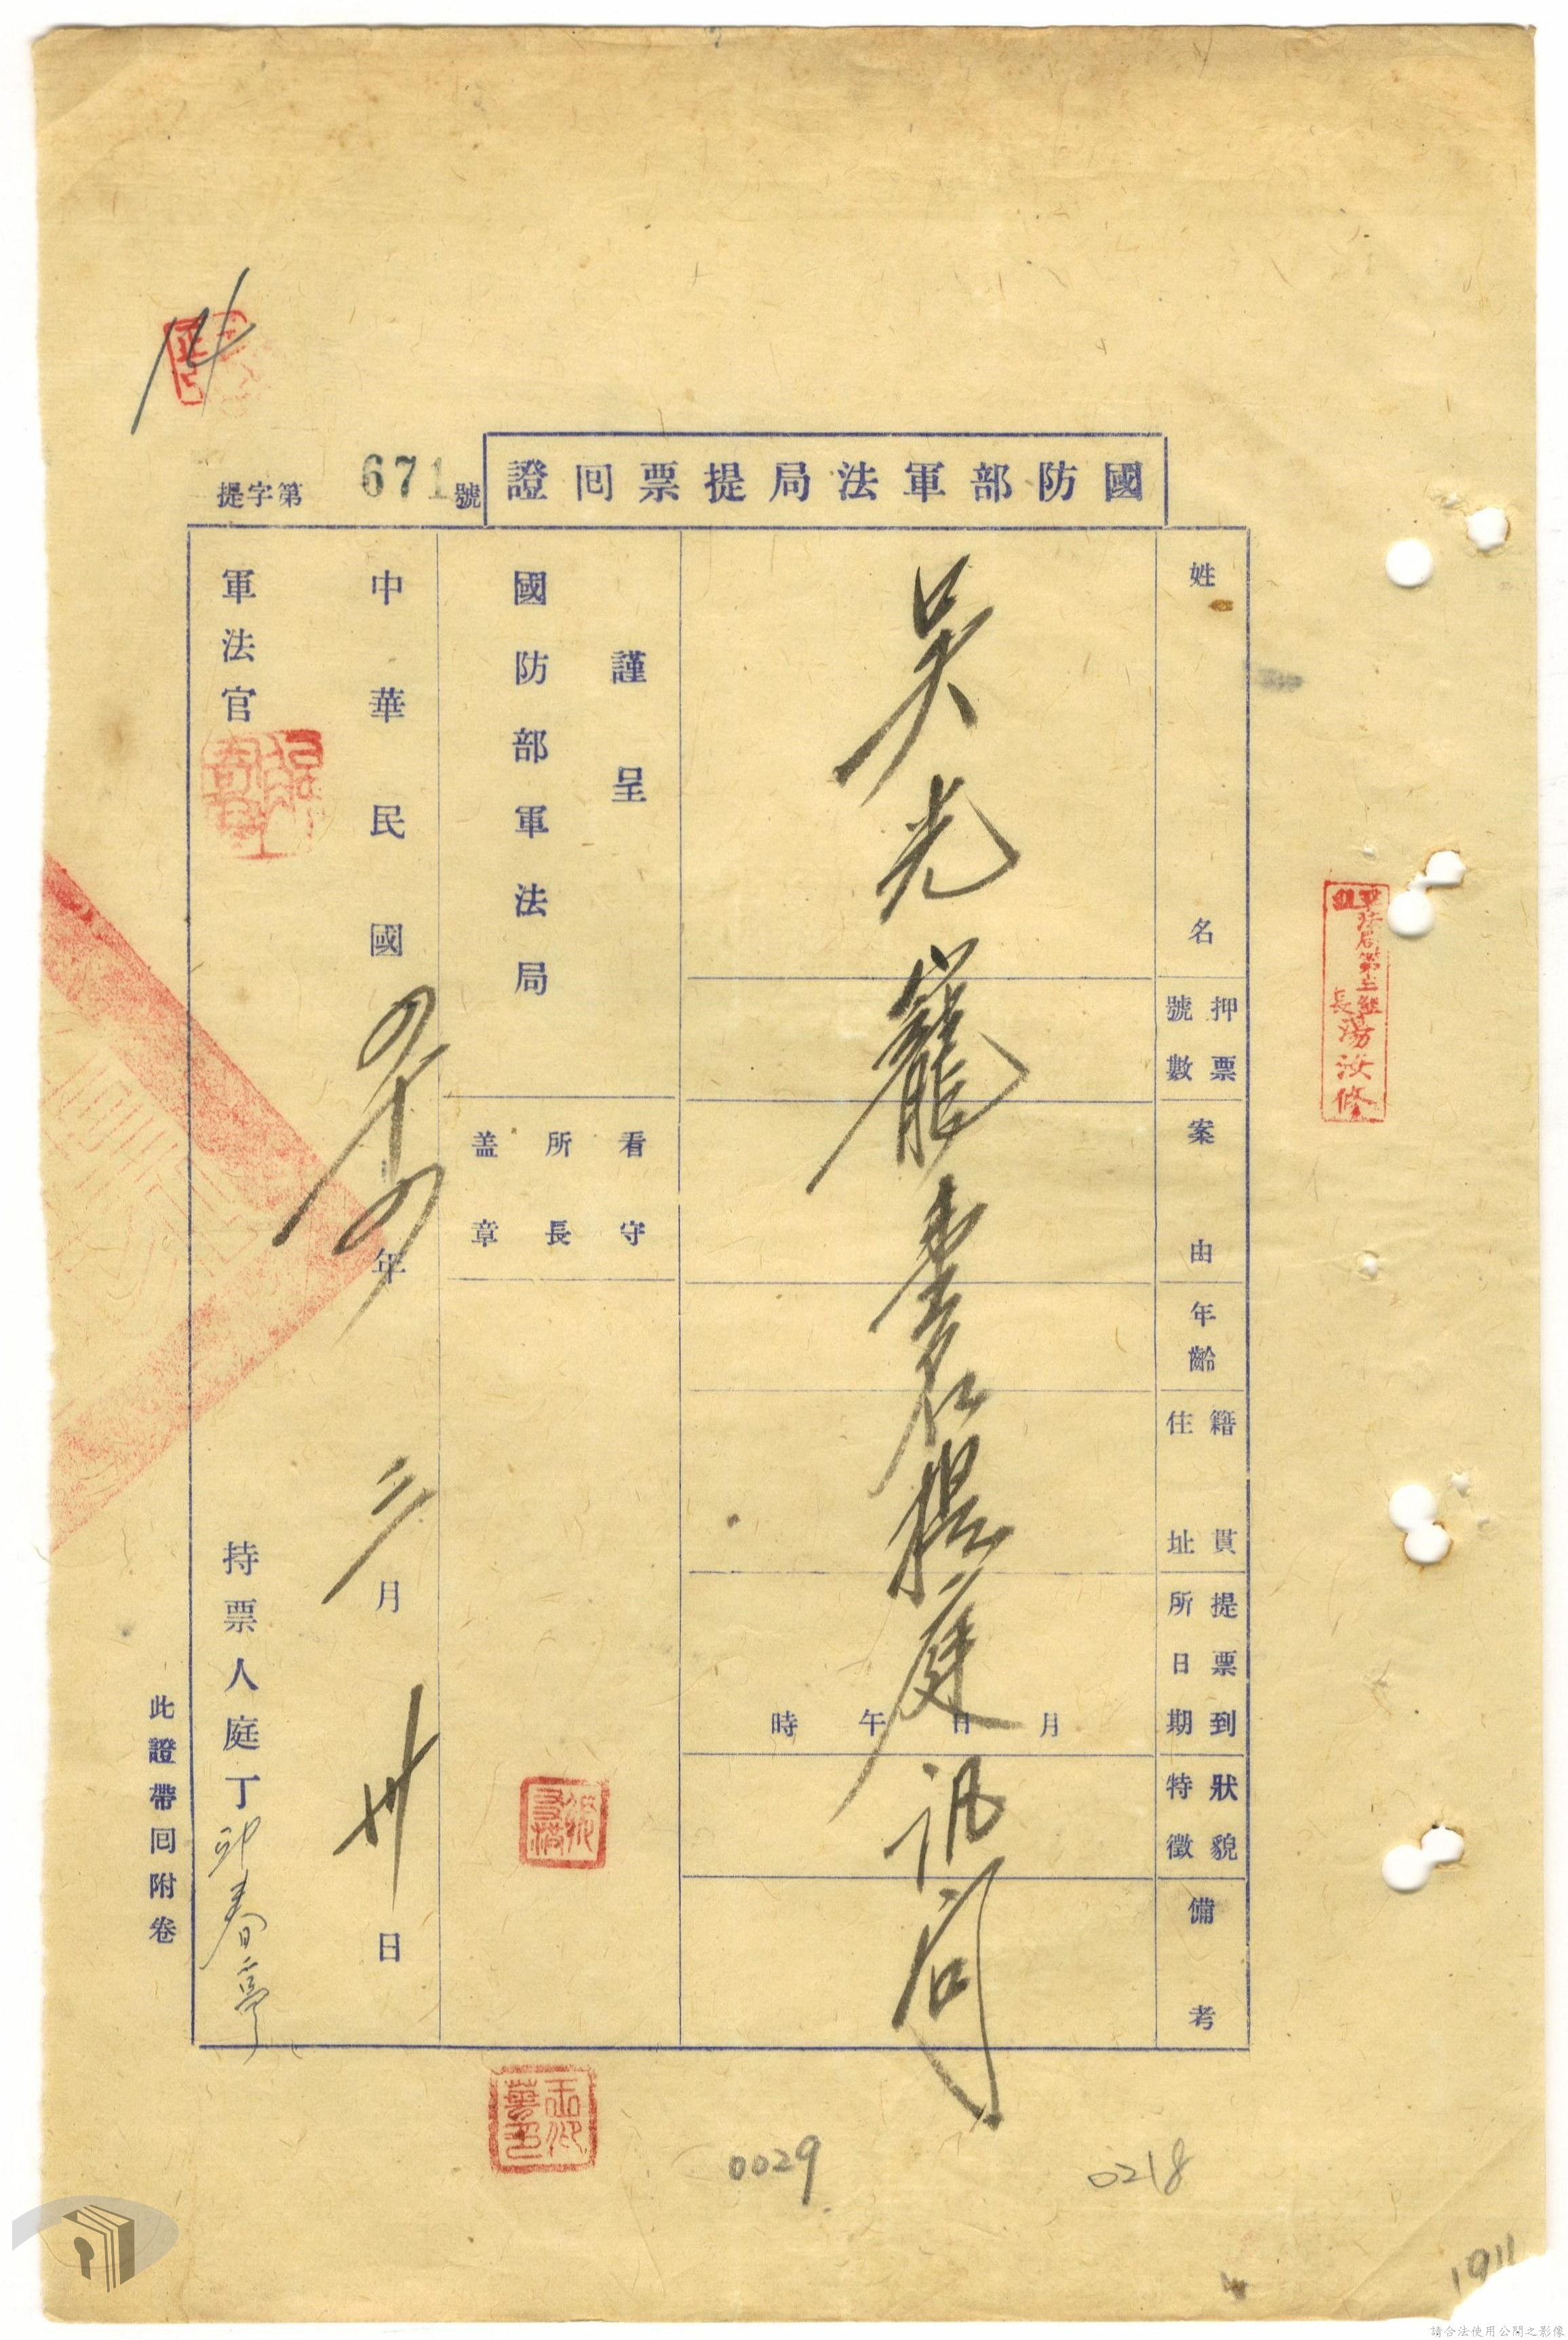 國防部軍法局提票回證
提字第671號
姓名
押票號數
案由
年齡
籍貫住址
提票到所日期
狀貌特徵
備考
吳光
提庭訊問
月日午時
謹呈
國防部軍法局
看守所長盖章
中華民國四十四年三月卅日
軍法官
持票人庭丁
春亭
此證帶回附卷
軍法局第三組組長湯汝修
14
0029
0218
1911
請合法使用公開之影像